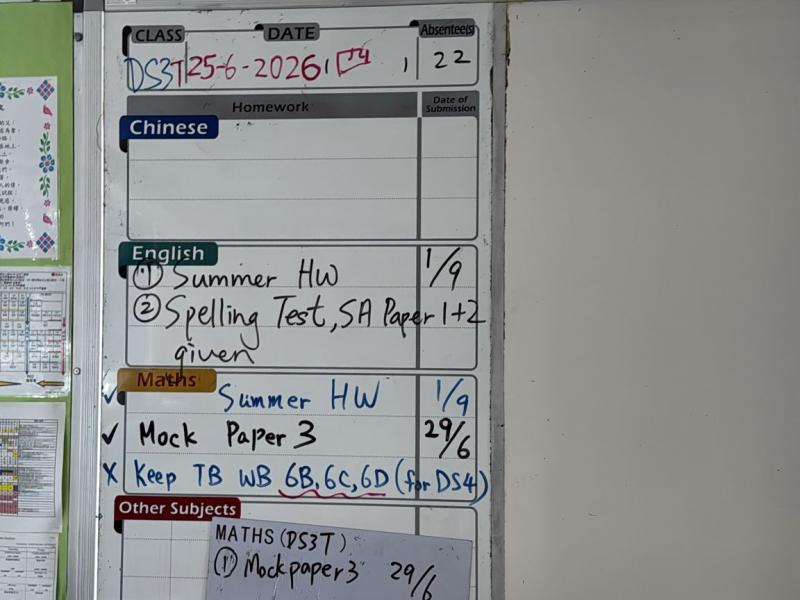 CLASS DATE Absentee(s)
DS3T 25-6-2026 22
Homework Date of Submission
Chinese
English
① Summer HW 1/9
② Spelling Test, SA Paper 1+2
given
Maths
✓ Summer HW 1/9
✓ Mock Paper 3 29/6
X Keep TB WB 6B, 6C, 6D (for DS4)
Other Subjects
MATHS (DS3T)
① Mock paper 3 29/6